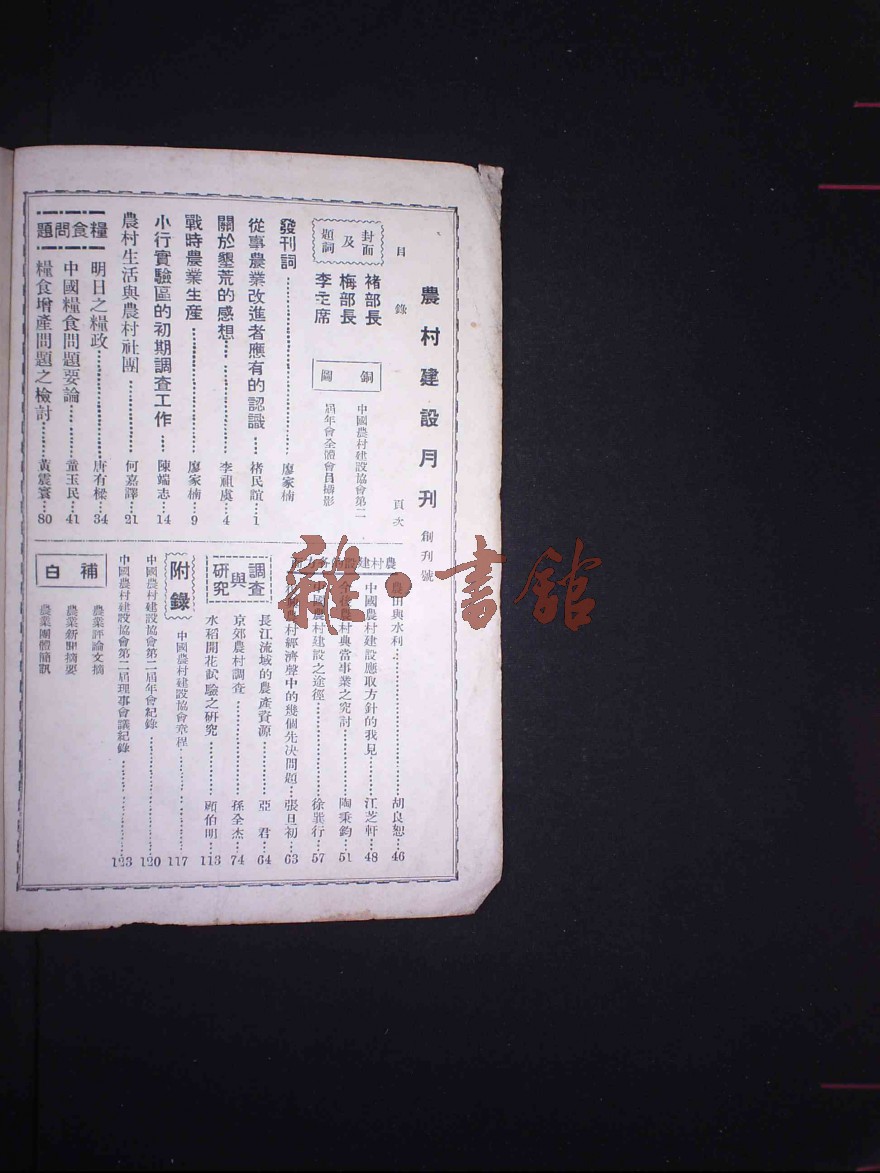 農村建設月刊 創刊號
目錄 頁次
封面及題詞
褚部長
梅部長
李主席
銅圖
中國農村建設協會第二
屆年會全體會員攝影
發刊詞 廖家楠
從事農業改進者應有的認識 褚民誼 1
關於墾荒的感想 李祖虞 4
戰時農業生產 廖家楠 9
小行實驗區的初期調查工作 陳端志 14
農村生活與農村社團 何嘉譯 21
糧食問題
明日之糧政 唐有樑 34
中國糧食問題要論 童玉民 41
糧食增產問題之檢討 黃震寰 80
農村建設
農田與水利 胡良恕 46
中國農村建設應取方針的我見 江芝軒 48
典當事業之究討 陶秉鈞 51
中國農村建設之途徑 徐巽行 57
農村經濟聲中的幾個先決問題 張旦初 63
調查與研究
長江流域的農產資源 亞君 64
京郊農村調查 孫全杰 74
水稻開花試驗之研究 顧伯明 113
附錄
中國農村建設協會章程 117
中國農村建設協會第二屆年會紀錄 120
中國農村建設協會第二屆理事會議紀錄 123
補白
農業評論文摘
農業新聞摘要
農業團體簡訊
雜·書館